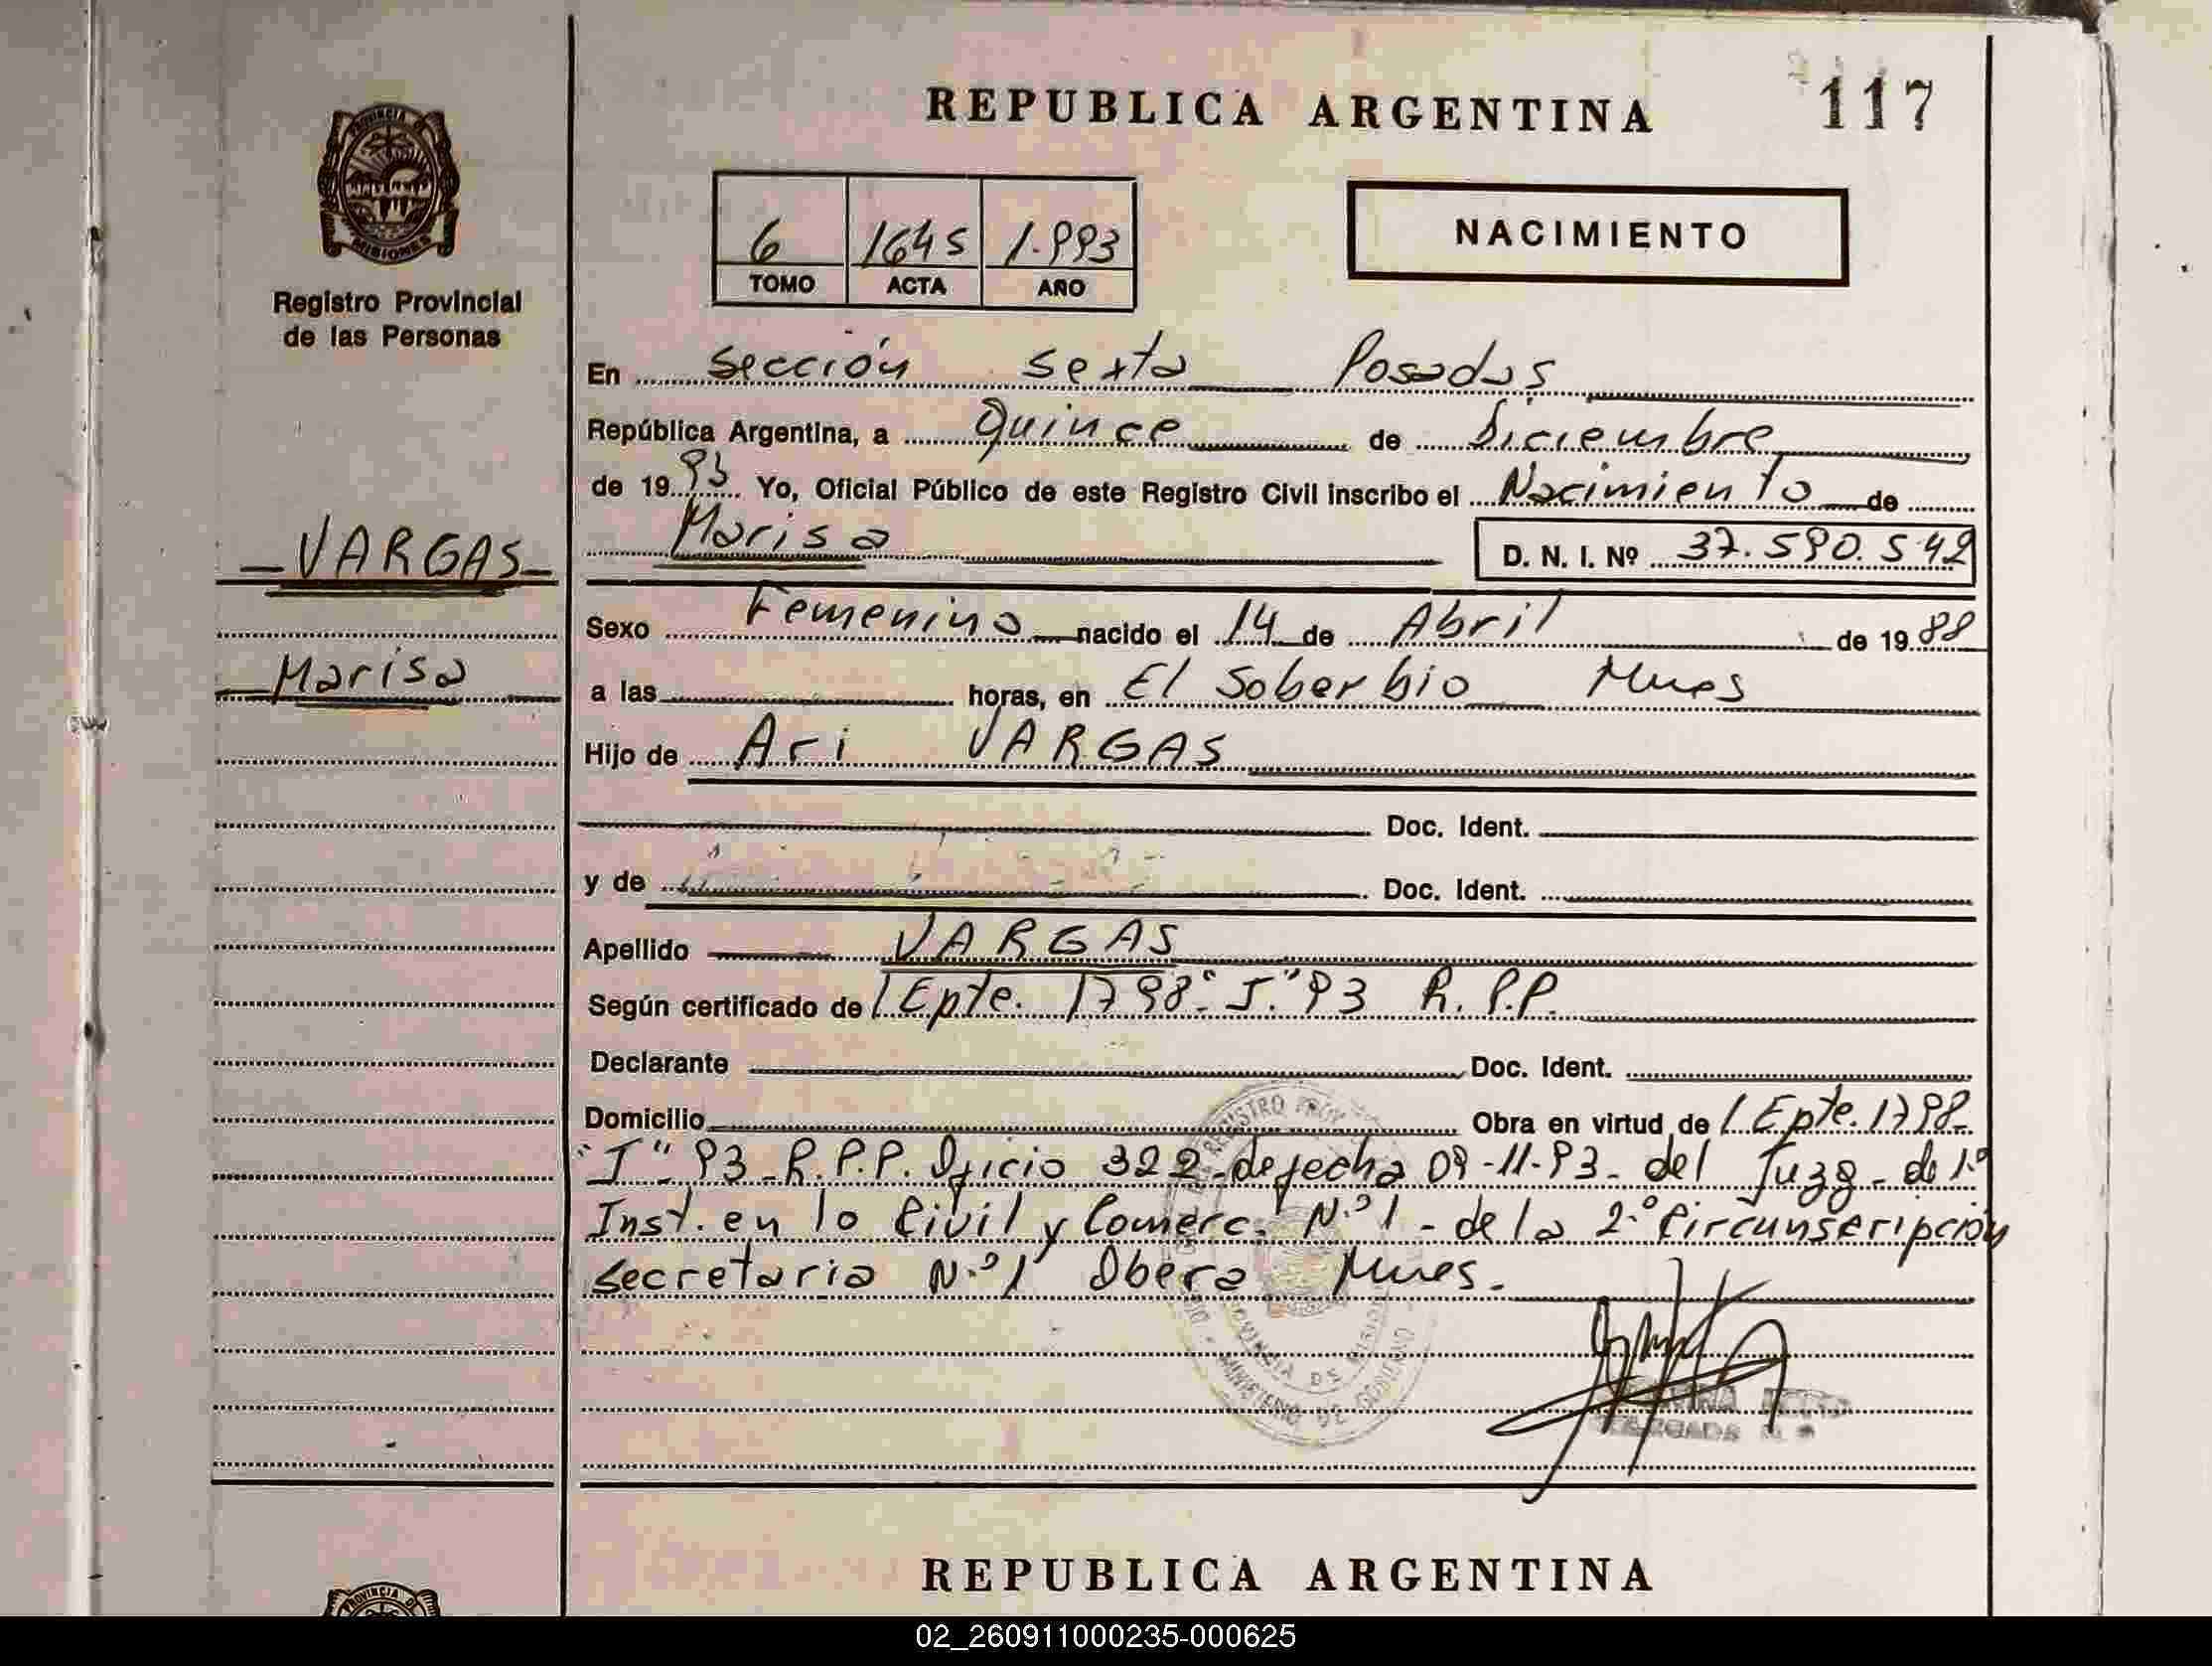 REPUBLICA ARGENTINA
117
PROVINCIA DE
MISIONES
Registro Provincial
de las Personas
6 1645 1.993
TOMO ACTA AÑO
NACIMIENTO
En Sección Sexta Posadas
República Argentina, a Quince de Diciembre
de 1993 Yo, Oficial Público de este Registro Civil inscribo el Nacimiento de
Marisa D. N. I. Nº 37.590.542
VARGAS
Marisa
Sexo Femenino nacido el 14 de Abril de 1988
a las horas, en El Soberbio Mnes
Hijo de Ari VARGAS
Doc. Ident.
y de Doc. Ident.
Apellido VARGAS
Según certificado de Epte. 1798-"I"93 R.P.P.
Declarante Doc. Ident.
Domicilio Obra en virtud de Epte. 1798-
"I" 93 - R.P.P. Oficio 322 - de fecha 09-11-93 - del Juzg - de 1.º
Inst. en lo Civil y Comerc. N.º 1 - de la 2.º Circunscripción
Secretaria N.º 1 Obera Mnes.
PROVINCIA DE MISIONES
MINISTERIO DE GOBIERNO
REPUBLICA ARGENTINA
PROVINCIA DE
02_260911000235-000625